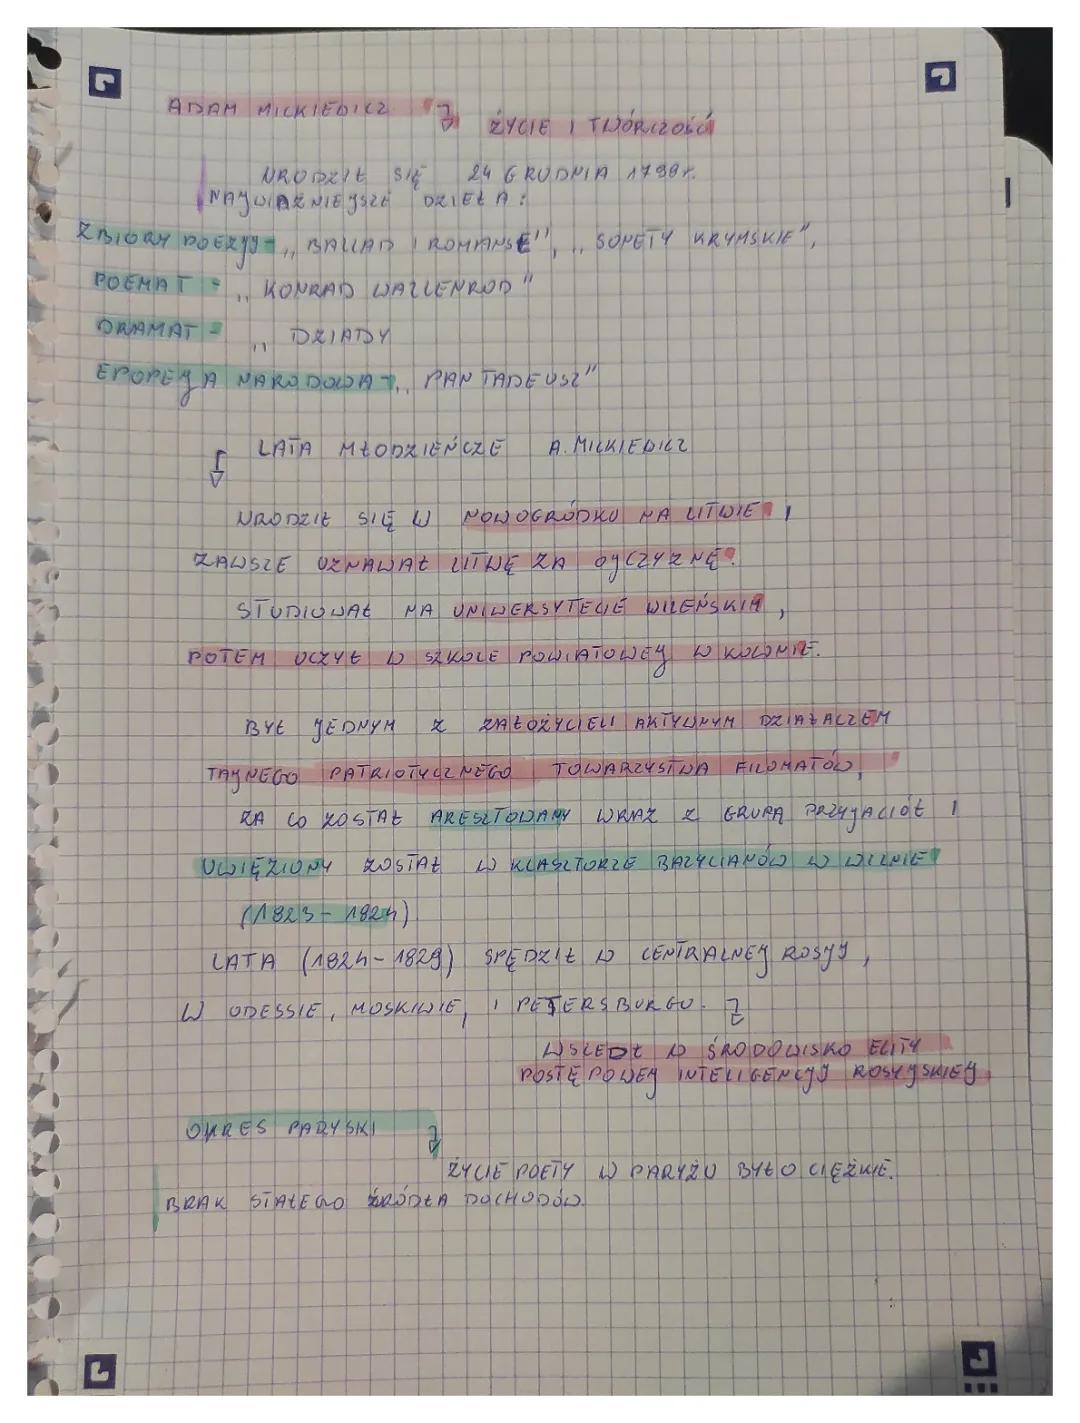 ADAM MICKIEWICZ
ŻYCIE I TWÓRCZOŚĆ
URODZIŁ SIĘ 24 GRUDNIA 1798r.
NAJWAŻNIEJSZE DZIEŁA:
ZBIORY POEZJI - ,, BALLAD I ROMANSE", ,, SONETY KRYMSKIE",
POEMAT - ,, KONRAD WALLENROD"
DRAMAT - ,, DZIADY
EPOPEJA NARODOWA - ,, PAN TADEUSZ"
LATA MŁODZIEŃCZE A. MICKIEWICZ
URODZIŁ SIĘ W NOWOGRÓDKU NA LITWIE I
ZAWSZE UZNAWAŁ LITWĘ ZA OJCZYZNĘ.
STUDIOWAŁ NA UNIWERSYTECIE WILEŃSKIM,
POTEM UCZYŁ W SZKOLE POWIATOWEJ W KOWNIE.
BYŁ JEDNYM Z ZAŁOŻYCIELI AKTYWNYM DZIAŁACZEM
TAJNEGO PATRIOTYCZNEGO TOWARZYSTWA FILOMATÓW,
ZA CO ZOSTAŁ ARESZTOWANY WRAZ Z GRUPĄ PRZYJACIÓŁ I
UWIĘZIONY ZOSTAŁ W KLASZTORZE BAZYLIANÓW W WILNIE
(1823 - 1824)
LATA (1824 - 1829) SPĘDZIŁ W CENTRALNEJ ROSJI,
W ODESSIE, MOSKWIE, I PETERSBURGU.
WSZEDŁ W ŚRODOWISKO ELITY
POSTĘPOWEJ INTELIGENCJI ROSYJSKIEJ.
OKRES PARYSKI
ŻYCIE POETY W PARYŻU BYŁO CIĘŻKIE.
BRAK STAŁEGO ŹRÓDŁA DOCHODÓW.